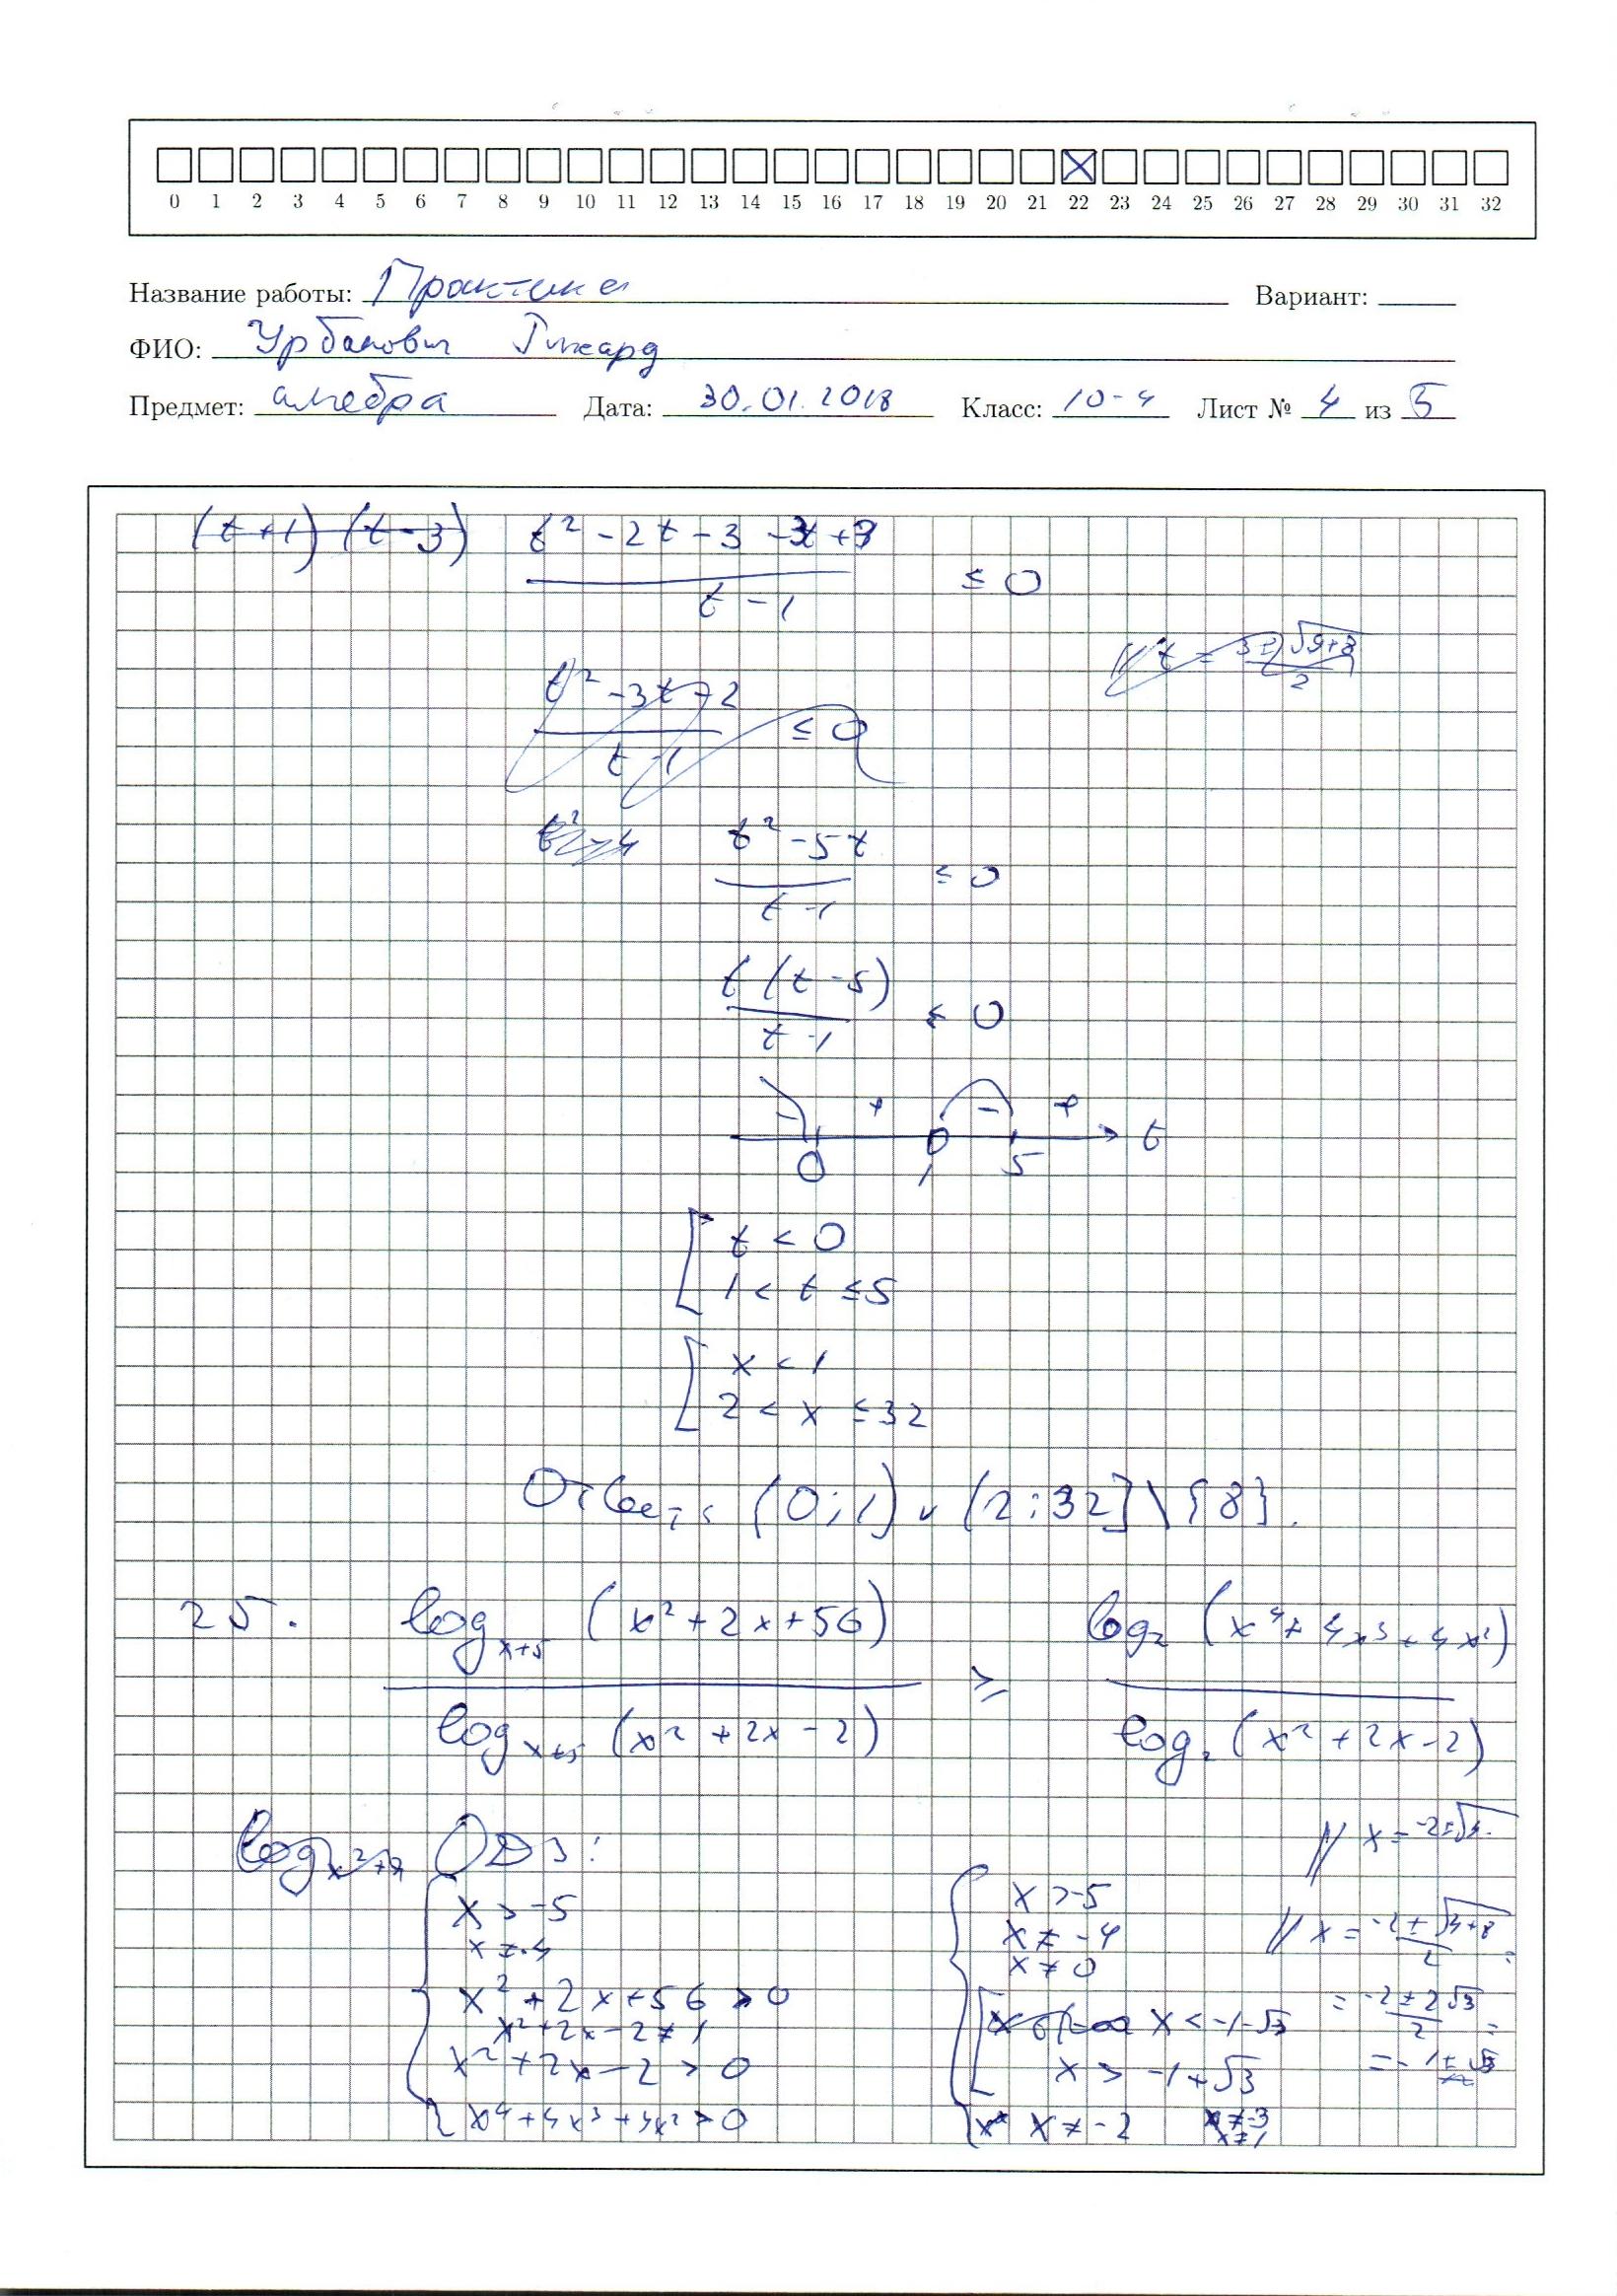 0 1 2 3 4 5 6 7 8 9 10 11 12 13 14 15 16 17 18 19 20 21 22 23 24 25 26 27 28 29 30 31 32
Название работы: Практика Вариант:
ФИО: Урбанович Рикард
Предмет: алгебра Дата: 30.01.2018 Класс: 10-4 Лист № 4 из 5
(t+1) (t-3) t² - 2t - 3 - 3t + 3
≤ 0
t - 1
// t = 3 ± √9+8
2
t² - 3t + 2
≤ 0
t - 1
t² - 5t
≤ 0
t - 1
t (t - 5)
≤ 0
t - 1
- + - + t
0 1 5
t < 0
1 < t ≤ 5
x < 1
2 < x ≤ 32
Ответ: (0;1) ∪ (2;32] \ {8}.
25. log x+5 (x² + 2x + 56) log₂ (x⁴ + 4x³ + 4x²)
≥
log x+5 (x² + 2x - 2) log₂ (x² + 2x - 2)
ОДЗ:
// x = -2±√4
x > -5 x > -5
x ≠ -4 x ≠ -4 // x = -2 ± √4+8
2 =
x ≠ 0
x² + 2x + 56 > 0
x² + 2x - 2 ≠ 1 x < -1-√3 = -2 ± 2√3
2 =
x² + 2x - 2 > 0 x > -1 + √3 = -1 ± √3
x⁴ + 4x³ + 4x² > 0 x ≠ -2 x ≠ -3
x ≠ 1